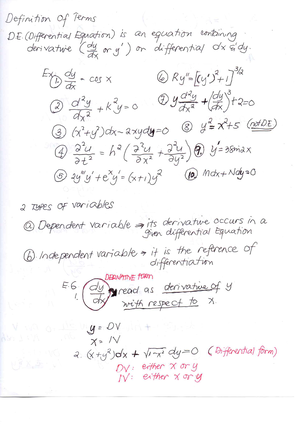 Definition of Terms
DE (Differential Equation) is an equation containing
derivative (dy/dx or y') or differential dx & dy.
Ex. 1. dy/dx = cos x
6 Ry'' = [(y')² + 1]^(3/2)
2 d²y/dx² + k²y = 0
7. y d²y/dx² + (dy/dx)³ + 2 = 0
3 (x² + y²)dx - 2xydy = 0
8 y² = x² + 5 (not DE)
4 ∂²u/∂t² = h² (∂²u/∂x² + ∂²u/∂y²)
9. y' =
5 2y'''y' + e^x y' = (x+1)y²
10. Mdx + Ndy = 0
2 TYPES OF VARIABLES
a Dependent variable → its derivative occurs in a
given differential Equation
b Independent variable → it is the reference of
differentiation
DERIVATIVE FORM
E.G 1. dy/dx read as derivative of y
with respect to x
y = DV
x = IV
2. (x + y²)dx + √(1-x²) dy = 0 (Differential form)
DV: either x or y
IV: either x or y